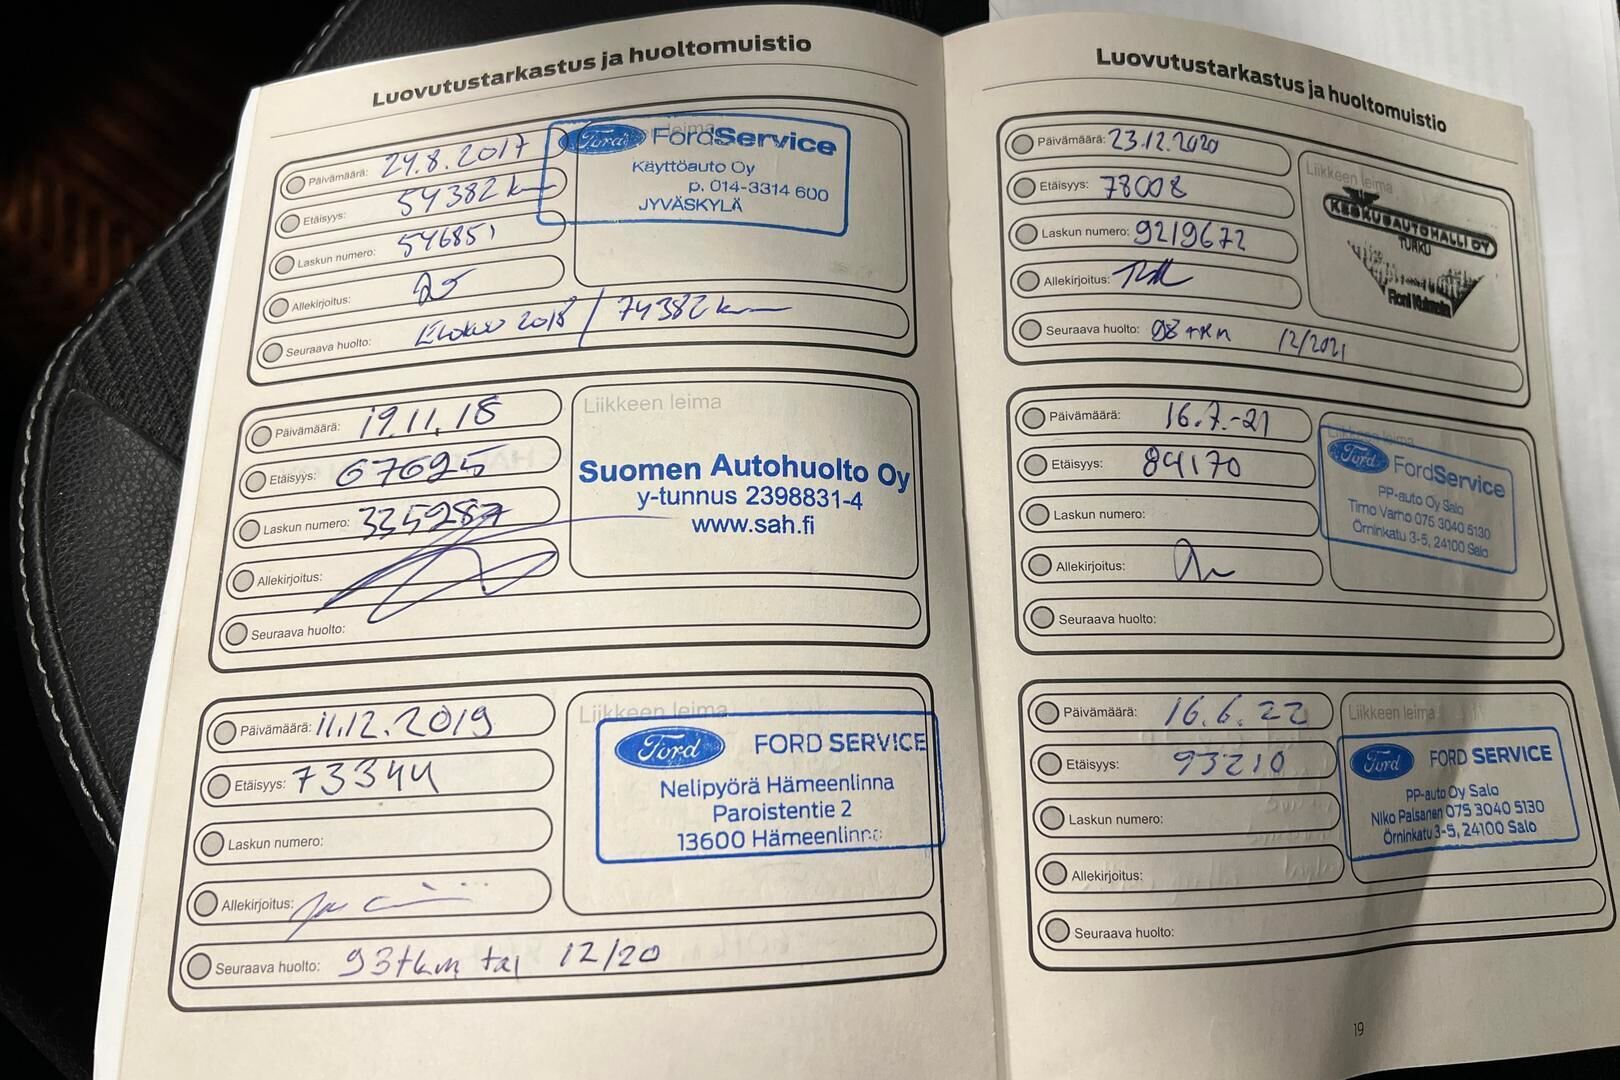 Luovutustarkastus ja huoltomuistio
Päivämäärä: 24.8.2017
Etäisyys: 54382 km
Laskun numero: 546851
Allekirjoitus:
Seuraava huolto: Elokuu 2018 / 74382 km
Ford FordService
Käyttöauto Oy
p. 014-3314 600
JYVÄSKYLÄ
Päivämäärä: 19.11.18
Etäisyys: 67695
Laskun numero: 335287
Allekirjoitus:
Seuraava huolto:
Liikkeen leima
Suomen Autohuolto Oy
y-tunnus 2398831-4
www.sah.fi
Päivämäärä: 11.12.2019
Etäisyys: 73344
Laskun numero:
Allekirjoitus:
Seuraava huolto: 93tkm tai 12/20
Liikkeen leima
Ford FORD SERVICE
Nelipyörä Hämeenlinna
Paroistentie 2
13600 Hämeenlinna
Luovutustarkastus ja huoltomuistio
Päivämäärä: 23.12.2020
Etäisyys: 78008
Laskun numero: 9219672
Allekirjoitus:
Seuraava huolto: 98 tkm 12/2021
Liikkeen leima
KESKUSAUTOHALLI OY
TURKU
Päivämäärä: 16.7.-21
Etäisyys: 84170
Laskun numero:
Allekirjoitus:
Seuraava huolto:
Liikkeen leima
Ford FordService
PP-auto Oy Salo
Timo Varho 075 3040 5130
Örninkatu 3-5, 24100 Salo
Päivämäärä: 16.6.22
Etäisyys: 93210
Laskun numero:
Allekirjoitus:
Seuraava huolto:
Liikkeen leima
Ford FORD SERVICE
PP-auto Oy Salo
Niko Palsanen 075 3040 5130
Örninkatu 3-5, 24100 Salo
19